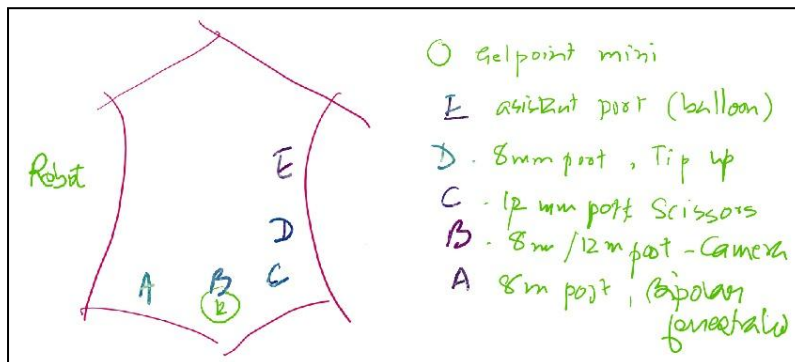 O Gelpoint mini
E assistant port (balloon)
D. 8mm port, Tip up
C. 12 mm port Scissors
B. 8m/12m port - Camera
A 8m port, Bipolar
fenestrated
Robot
E
D
C
A
B
12